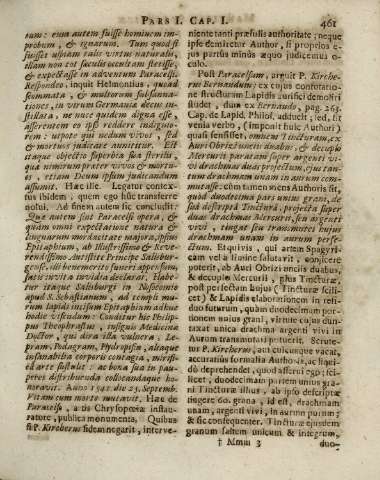 PARS I. CAP. I.
461
rum: eum autem fuisse hominem im-
probum, & ignarum. Tum quod si
fuisset usquam talis virtus naturalis,
illam non tot saeculis occultam stetisse,
& expectasse in adventum Paracelsi.
Respondeo, inquit Helmontius, quoad
scommata, & multorum subsannationes,
in virum Germaniae decus
ne quidem digna esse
asserentem eo ipso reddere
rem: utpote qui nedum vivos, sed
& mortuos judicare annititur. Est
itaque objectio superbia sua sterilis,
qua numerum prater vivos & mortuos,
etiam Deum ipsum judicandum
assumit. Haec ille. Legatur contextus
ibidem, quem ego huc transferre
nolui. Ad finem autem sic concludit:
Quae autem sint Paracelsi opera, &
quam omni expectatione natura &
linguarum mordacitate majora, ipsius
Epitaphium, ab Illustrissimo & Reverendissimo
Antistite Principe Salisburgense,
illi benemerito funeri appensum,
satis invita invidia declarat. Habetur
itaque Salisburgi in Nosocomio
apud S. Sebastianum, ad templi murum
lapidi incisum Epitaphium adhuc
hodie visendum: Conditur hic Philippus
Theophrastus, insignis Medicinae
Doctor, qui dira illa vulnera, Lepram,
Podagram, Hydropisim, aliaque
insanabilia corporis contagia, mirifica
arte sustulit: ac bona sua in pauperes
distribuenda collocandaque honoravit.
Anno 1541 die 24. Septemb.
Vitam cum morte mutavit. Haec de
Paracelso, artis Chrysopoeiae instauratore,
publica monumenta. Quibus
si P. Kircherus fidem negarit, interve-
niente tanti praesulis authoritate; neque
ipse demiretur Author, si proprios ejus
partus minus aequo judicemus oculo.
Post Paracelsum, arguit P. Kircherus
Bernardum; ex cujus confortatione
structuram Lapidis aurifici demoliri
studet, dum ex Bernardo, pag. 265.
Cap. de Lapid. Philos. adducit; sed, sit
venia verbo, (imponit huic Authori)
quasi sensisset, omnem Tincturam, ex
Auri Obrizi unciis duabus, & decupio
Mercurii paratam super argenti vivi
drachmas duas projectum, ejus tantum
drachmam unam in aurum commutasse:
cum tamen mens Authoris sit,
quod duodecima pars unius grani, de
sua descripta Tinctura, projecta super
duas drachmas Mercurii, seu argenti
vivi, tingat seu transmutet hujus
drachmam unam in aurum perfectum.
Et quivis, qui artem Spagyricam
vel a limine salutavit, conjicere
poterit, ab Auri Obrizi unciis duabus,
& decuplo Mercurii, plus Tincturae,
post perfectam hujus (Tincturae scilicet)
& Lapidis elaborationem in residuo
futurum, quam duodecimam portionem
unius grani, virtute cujus duntaxat
unica drachma argenti vivi in
Aurum transmutari potuerit. Scrutetur
P. Kircherus, aut cuicumque vacat,
accuratius formalia Authoris, ac liquido
deprehendet, quod asserui ego; scilicet,
duodecimam partem unius grani
Tincturae illius, ab ipso descriptae
tingere 60. grana, id est, drachmam
unam, argenti vivi, in aurum purum;
& sic consequenter. Tincturae ejusdem
granum saltem unicum & integrum,
† Mmm 3
duo-